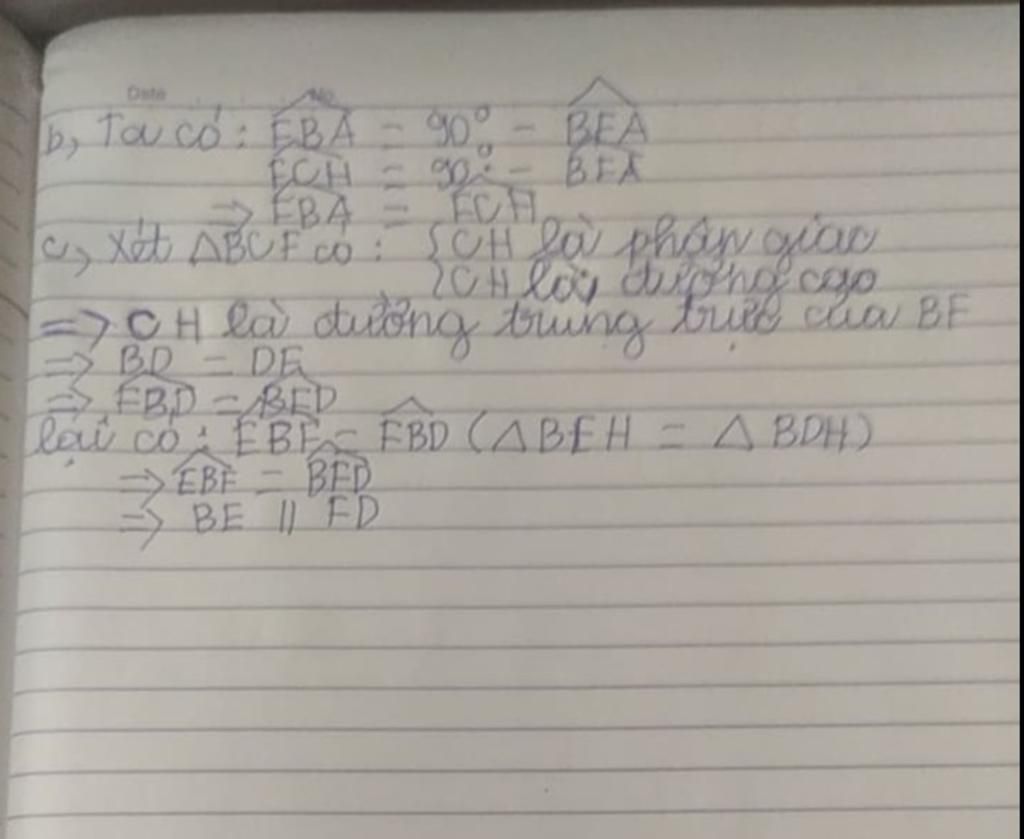 Date No
b, Ta có: EBA = 90° - BEA
ECH = 90° - BEA
=> EBA = ECH
c, Xét △BCF có: {CH là phân giác
{CH là đường cao
=> CH là đường trung trực của BF
=> BD = DF
=> FBD = BFD
lại có: EBF = FBD (△BEH = △BDH)
=> EBF = BFD
=> BE // FD